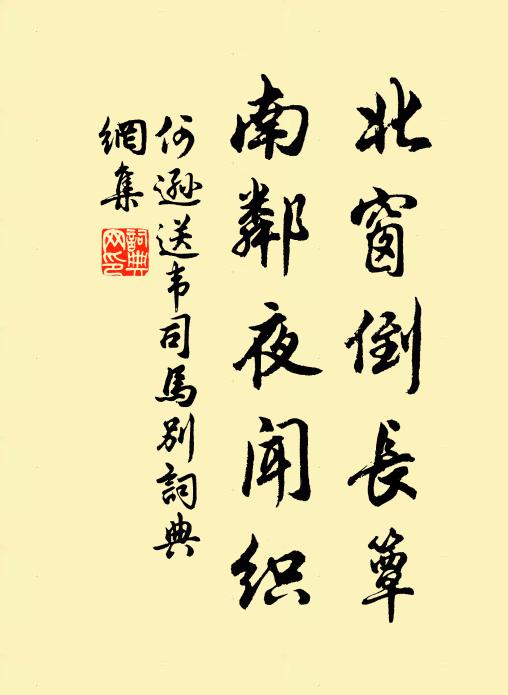 北窗倒長簟
南鄰夜闻织
何遜送韦司馬别詞典
網集
詞典網印